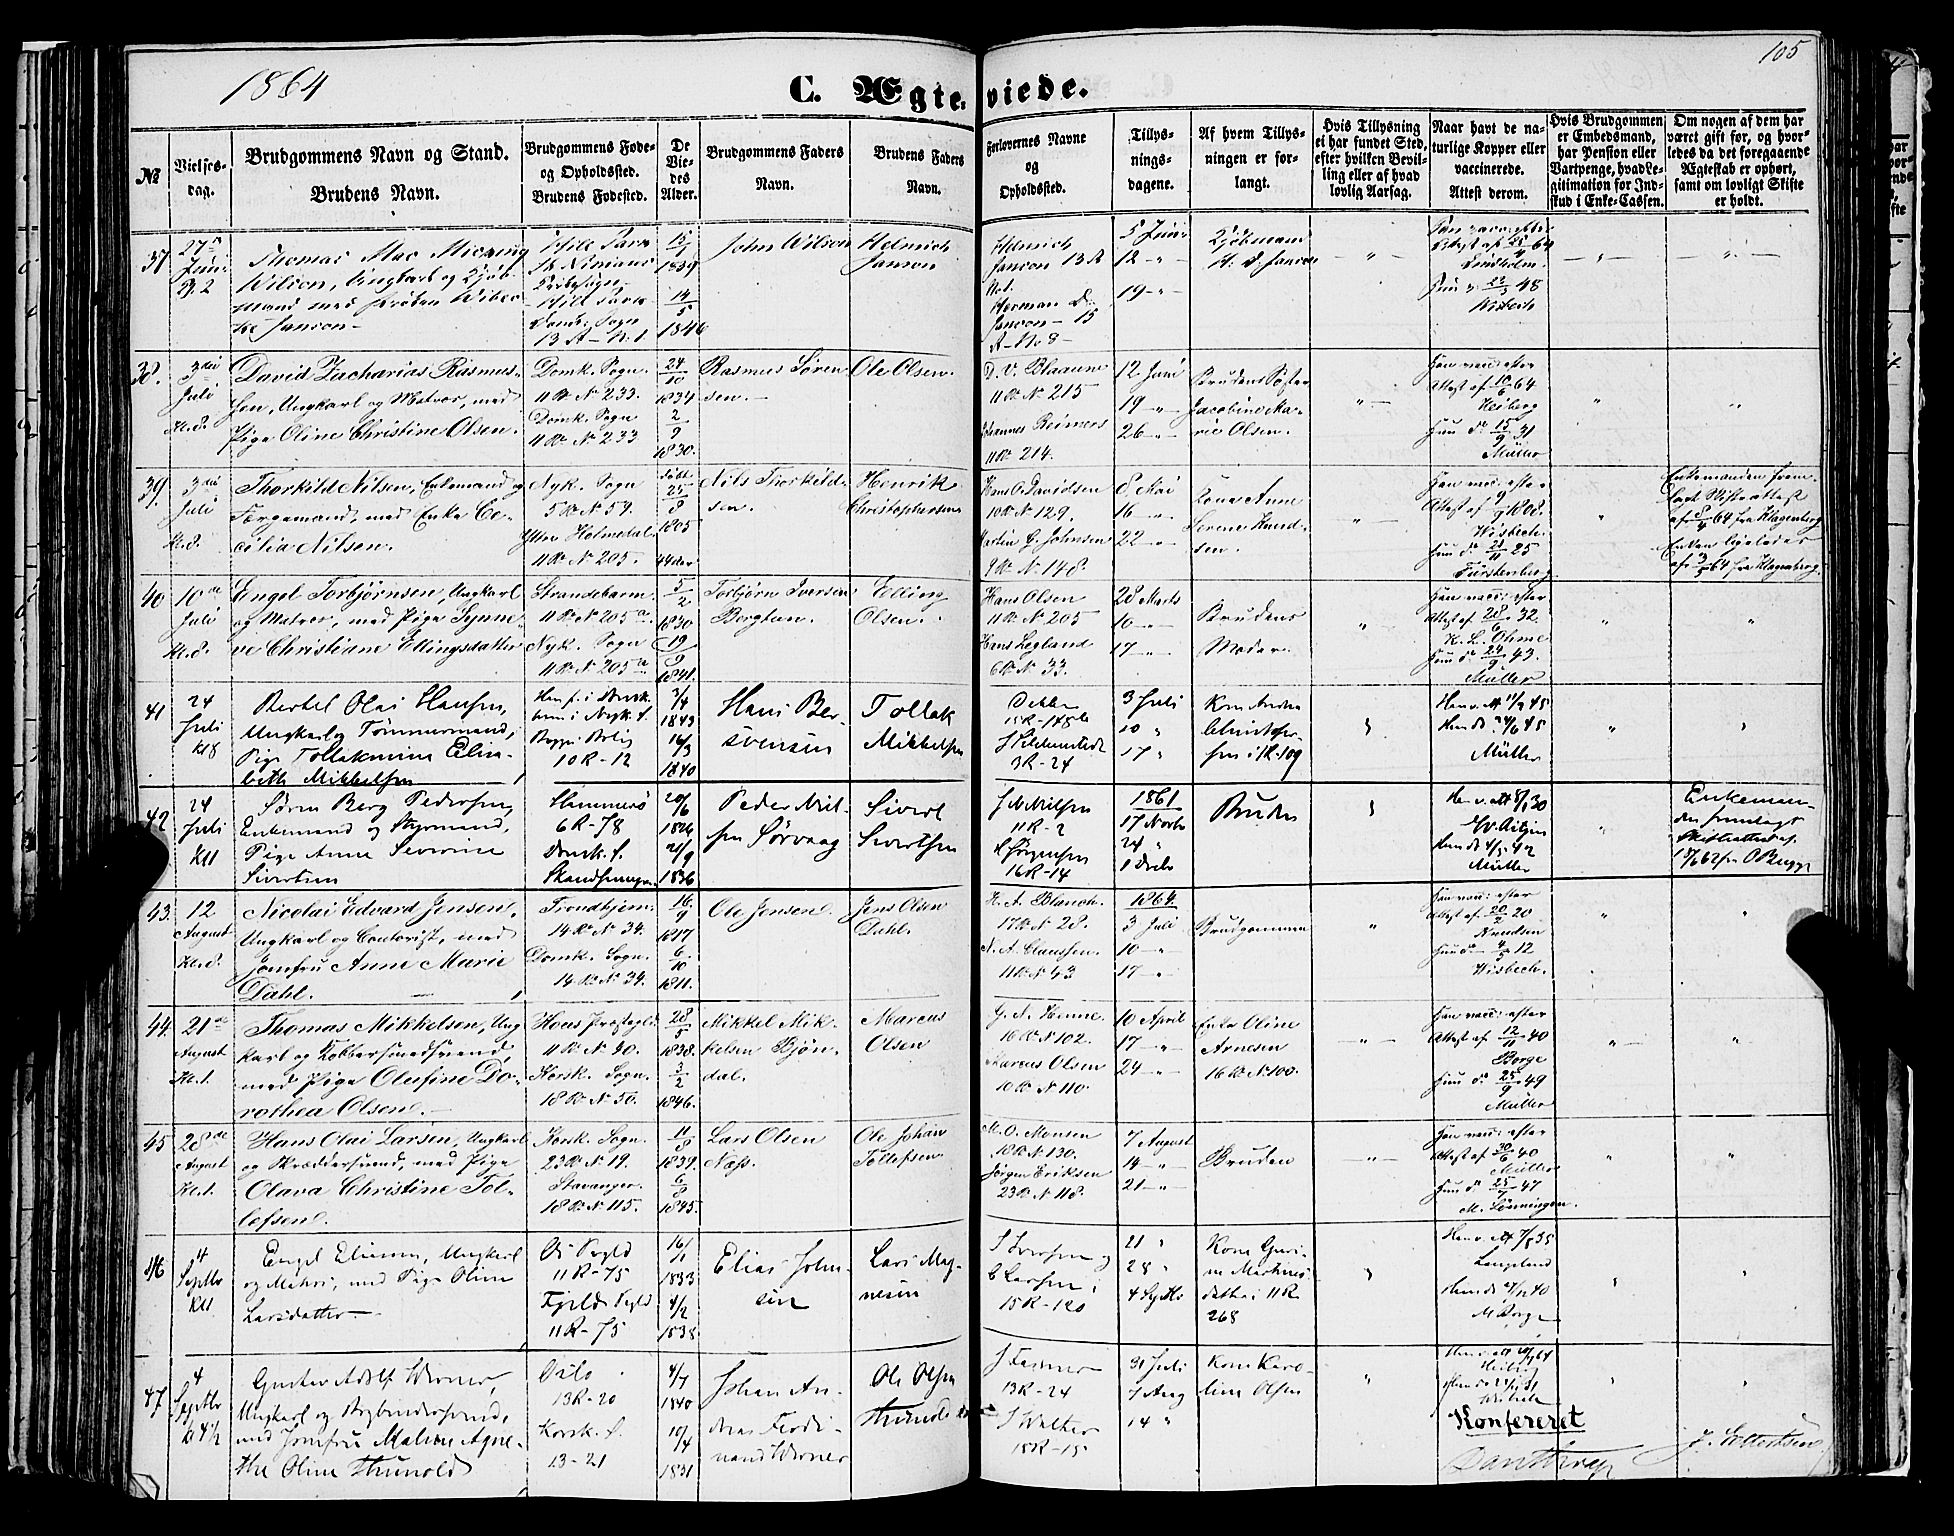 1864
C. Ægteviede.
105
No
Vielses-
dag.
Brudgommens Navn og Stand.
Brudens Navn.
Brudgommens Føde-
og Opholdssted.
Brudens Fødested.
De
Vie-
des
Alder.
Brudgommens Faders
Navn.
Brudens Faders
Navn.
Forlovernes Navne
og
Opholdssted.
Tillys-
nings-
dagene.
Af hvem Tillys-
ningen er for-
langt.
Hvis Tillysning
ei har fundet Sted,
efter hvilken Bevil-
ling eller af hvad
lovlig Aarsag.
Naar havt de na-
turlige Kopper eller
vaccinerede.
Attest derom.
Hvis Brudgommen
er Embedsmand,
har Pension eller
Vartpenge, hvad Le-
gitimation for Ind-
skud i Enke-Cassen.
Om nogen af dem har
været gift før, og hvor-
ledes da det foregaaende
Ægteskab er ophørt,
samt om lovligt Skifte
er holdt.
37
27de
Juni
Thomas Mac Micking
Wilson, Ungkarl og Kjøb-
mand med Frøken Wibec-
ke Janson
St. Ninians
Domk. Sogn
13 R No 1.
15/1
1839
14/5
1840
John Wilson
Helmich
Janson
Helmich
Janson 13 R
No 1.
Herman D.
Janson - 15
R - No 8 -
5 Juni
12 - " -
19 - " -
Kjøbmand
H. D. Janson
- " -
Lindholm.
Hun d. 22/3 48
Wisbech
38.
3die
Juli
Kl. 8.
David Zacharias Rasmus-
sen, Ungkarl og Matros, med
Pige Oline Christine Olsen.
Domk. Sogn.
11 R. No 233.
Domk. Sogn
11 R. No 233
24/10
1834
2/9
1830.
Rasmus Søren-
sen.
Ole Olsen.
D. V. Blaaune
11 R. No 215
Johannes Reimers
11 R 214.
12 Juni
19 - " -
26 - " -
Brudens Søster
Jacobine Ma-
rie Olsen.
Han vacc: efter
Attest af 10/6 64
Heiberg
Hun d. 15/9 31
Müller
39.
3die
Juli
Kl. 8.
Thorkild Nilsen, Enkemand og
Færgemand, med Enke Ce-
cilia Nilsen.
Nyk. Sogn
5 R No 59.
Yttre Holmedal.
11 R. No 205.
født
25/8
1805
44 Aar
Nils Thorkild-
sen.
Henrik
Christophersen
Hans O. Davidsen
10 R No 129.
Martin G. Johnsen
9 R No 148.
8 Mai
16 - " -
22 - " -
Kone Anne
Serene Knud-
sen.
Han vacc: efter
Attest af 9/9 1808.
Wisbech.
Hun d. 21/11 25
Fürstenberg.
Enkemanden frem-
lagt Skifteattest
af 8/4 64 fra Klagenberg
Enken ligeledes
af 3/5 64 fra Klagenberg.
40
10de
Juli
Kl. 8.
Engel Torbjørnsen, Ungkarl
og Matros, med Pige Synne-
ve Christiane Ellingsdatter
Strandebarm.
11 R No 205 a
Nyk. Sogn
11 R No 205 a
5/2
1830
19/9
1841.
Torbjørn Iversen
Bergtun.
Elling
Olsen.
Hans Olsen
11 R No 205
Hans Legland
6 R No 33.
28 Marts
10 - " -
17 - " -
Brudens
Moder.
Han vacc: efter
Attest af 28/6 32.
K. L. Ohme
Hun d. 24/9 43.
Müller
41
24
Juli
Kl 8
Bertel Olai Hansen,
Ungkarl og Tømmermand,
Pige Tollakmine Elisa-
beth Mikkelsen
10 R - 12
3/4
1843
16/3
1840
Hans Ber-
svensen
Tollak
Mikkelsen
15 R - 148 b
3 R - 24
3 Juli
10 "
17 "
Kone Andrea
Christopher-
sen i 1 R - 109
Müller
42
24
Juli
Kl 1
Søren Berg Pedersen,
Enkemand og Styrmand,
Pige Anne Severine
Sivertsen
Hammerø
6 R - 78
Domk. S.
20/6
1826
21/9
1836
Peder Niel-
sen Sørvaag
Sivert
Sivertsen
J. M. Nilsen
11 R - 2
H. Jørgensen
16 R - 14
1861
17 Novbr
24 "
1 Decbr
Bruden
Müller
Enkeman-
den fremlagt
Skifteattest af
43.
12
August
Kl. 8.
Nicolai Edvard Jensen,
Ungkarl og Contorist, med
Jomfru Anne Marie
Dahl.
Trondhjem.
14 R. No 34.
Domk. Sogn.
14 R. No 34.
16/9
1817
6/10
1811.
Ole Jensen.
Jens Olsen
Dahl.
H. A. Blauch.
17 R No 28.
N. A. Claussen
11 R No 43
1864
3 Juli
10 - " -
17 - " -
Brudgommen
Han vacc: efter
Attest af 20/2 20
Knudsen
Hun d. 4/5 12
Wisbech.
44.
21de
August
Kl. 1.
Thomas Mikkelsen, Ung-
karl og Kobbersmedsvend,
med Pige Olufine Do-
rothea Olsen.
Hous Præstegld
11 R. No 90.
Korsk. Sogn.
18 R. No 50.
28/5
1838.
3/2
1846.
Mikkel Mik-
kelsen Bjøn-
dal.
Marcus
Olsen
G. N. Henne.
16 R. No 102.
Marcus Olsen
10 R No 110.
10 April
17 - " -
24 - " -
Enke Oline
Arnesen
16 R No 100.
Han vacc: efter
Attest af 12/11 40
Borge
Hun d. 25/9 49
Müller
45
28de
August
Kl. 1.
Hans Olai Larsen, Ungkarl
og Skræddersvend, med Pige
Olava Christine Tol-
lefsen.
Korsk. Sogn.
23 R. No 19.
Stavanger.
18 R. No 115.
11/8
1839.
6/8
1845.
Lars Olsen
Næss.
Ole Johan
Tollefsen
M. O. Monsen
18 R No 130.
Jørgen Eriksen
23 R No 118.
7 August
14 - " -
21 - " -
Bruden
Han vacc: efter
Attest af 30/6 40
Müller
Hun d. 25/7 47
M. Lønningen.
46
4
Septbr
Kl 1
Engel Eliesen, Ungkarl
og Matros, med Pige Oline
Larsdatter
Os Pregld
11 R - 75
Fjelds Pregld
11 R - 75
16/1
1833
4/2
1838.
Elias John-
sen
Lars Mag-
nesen
S Iversen og
C Larsen i
15 R - 120
21 "
28 "
4 Septbr
Kone Guri-
ne Martines-
datter i 11 R
268
Langeland
M Borge
47
4
Septbr
Kl 4½
Gustav Adolf Werner,
Ungkarl og Bogbindersvend,
med Jomfru Malene Agne-
the Oline Thunold
Oslo
13 R - 20
Korsk. S.
13 - 21
4/7
1840
10/4
1831
Johan An-
dreas Ferdi-
nand Werner
Ole Olsen
Thunold
J Fasmer
13 R - 24
J Walter
18 R - 15
31 Juli
7 Aug
14 "
Kone Karo-
line Olsen
Konfereret